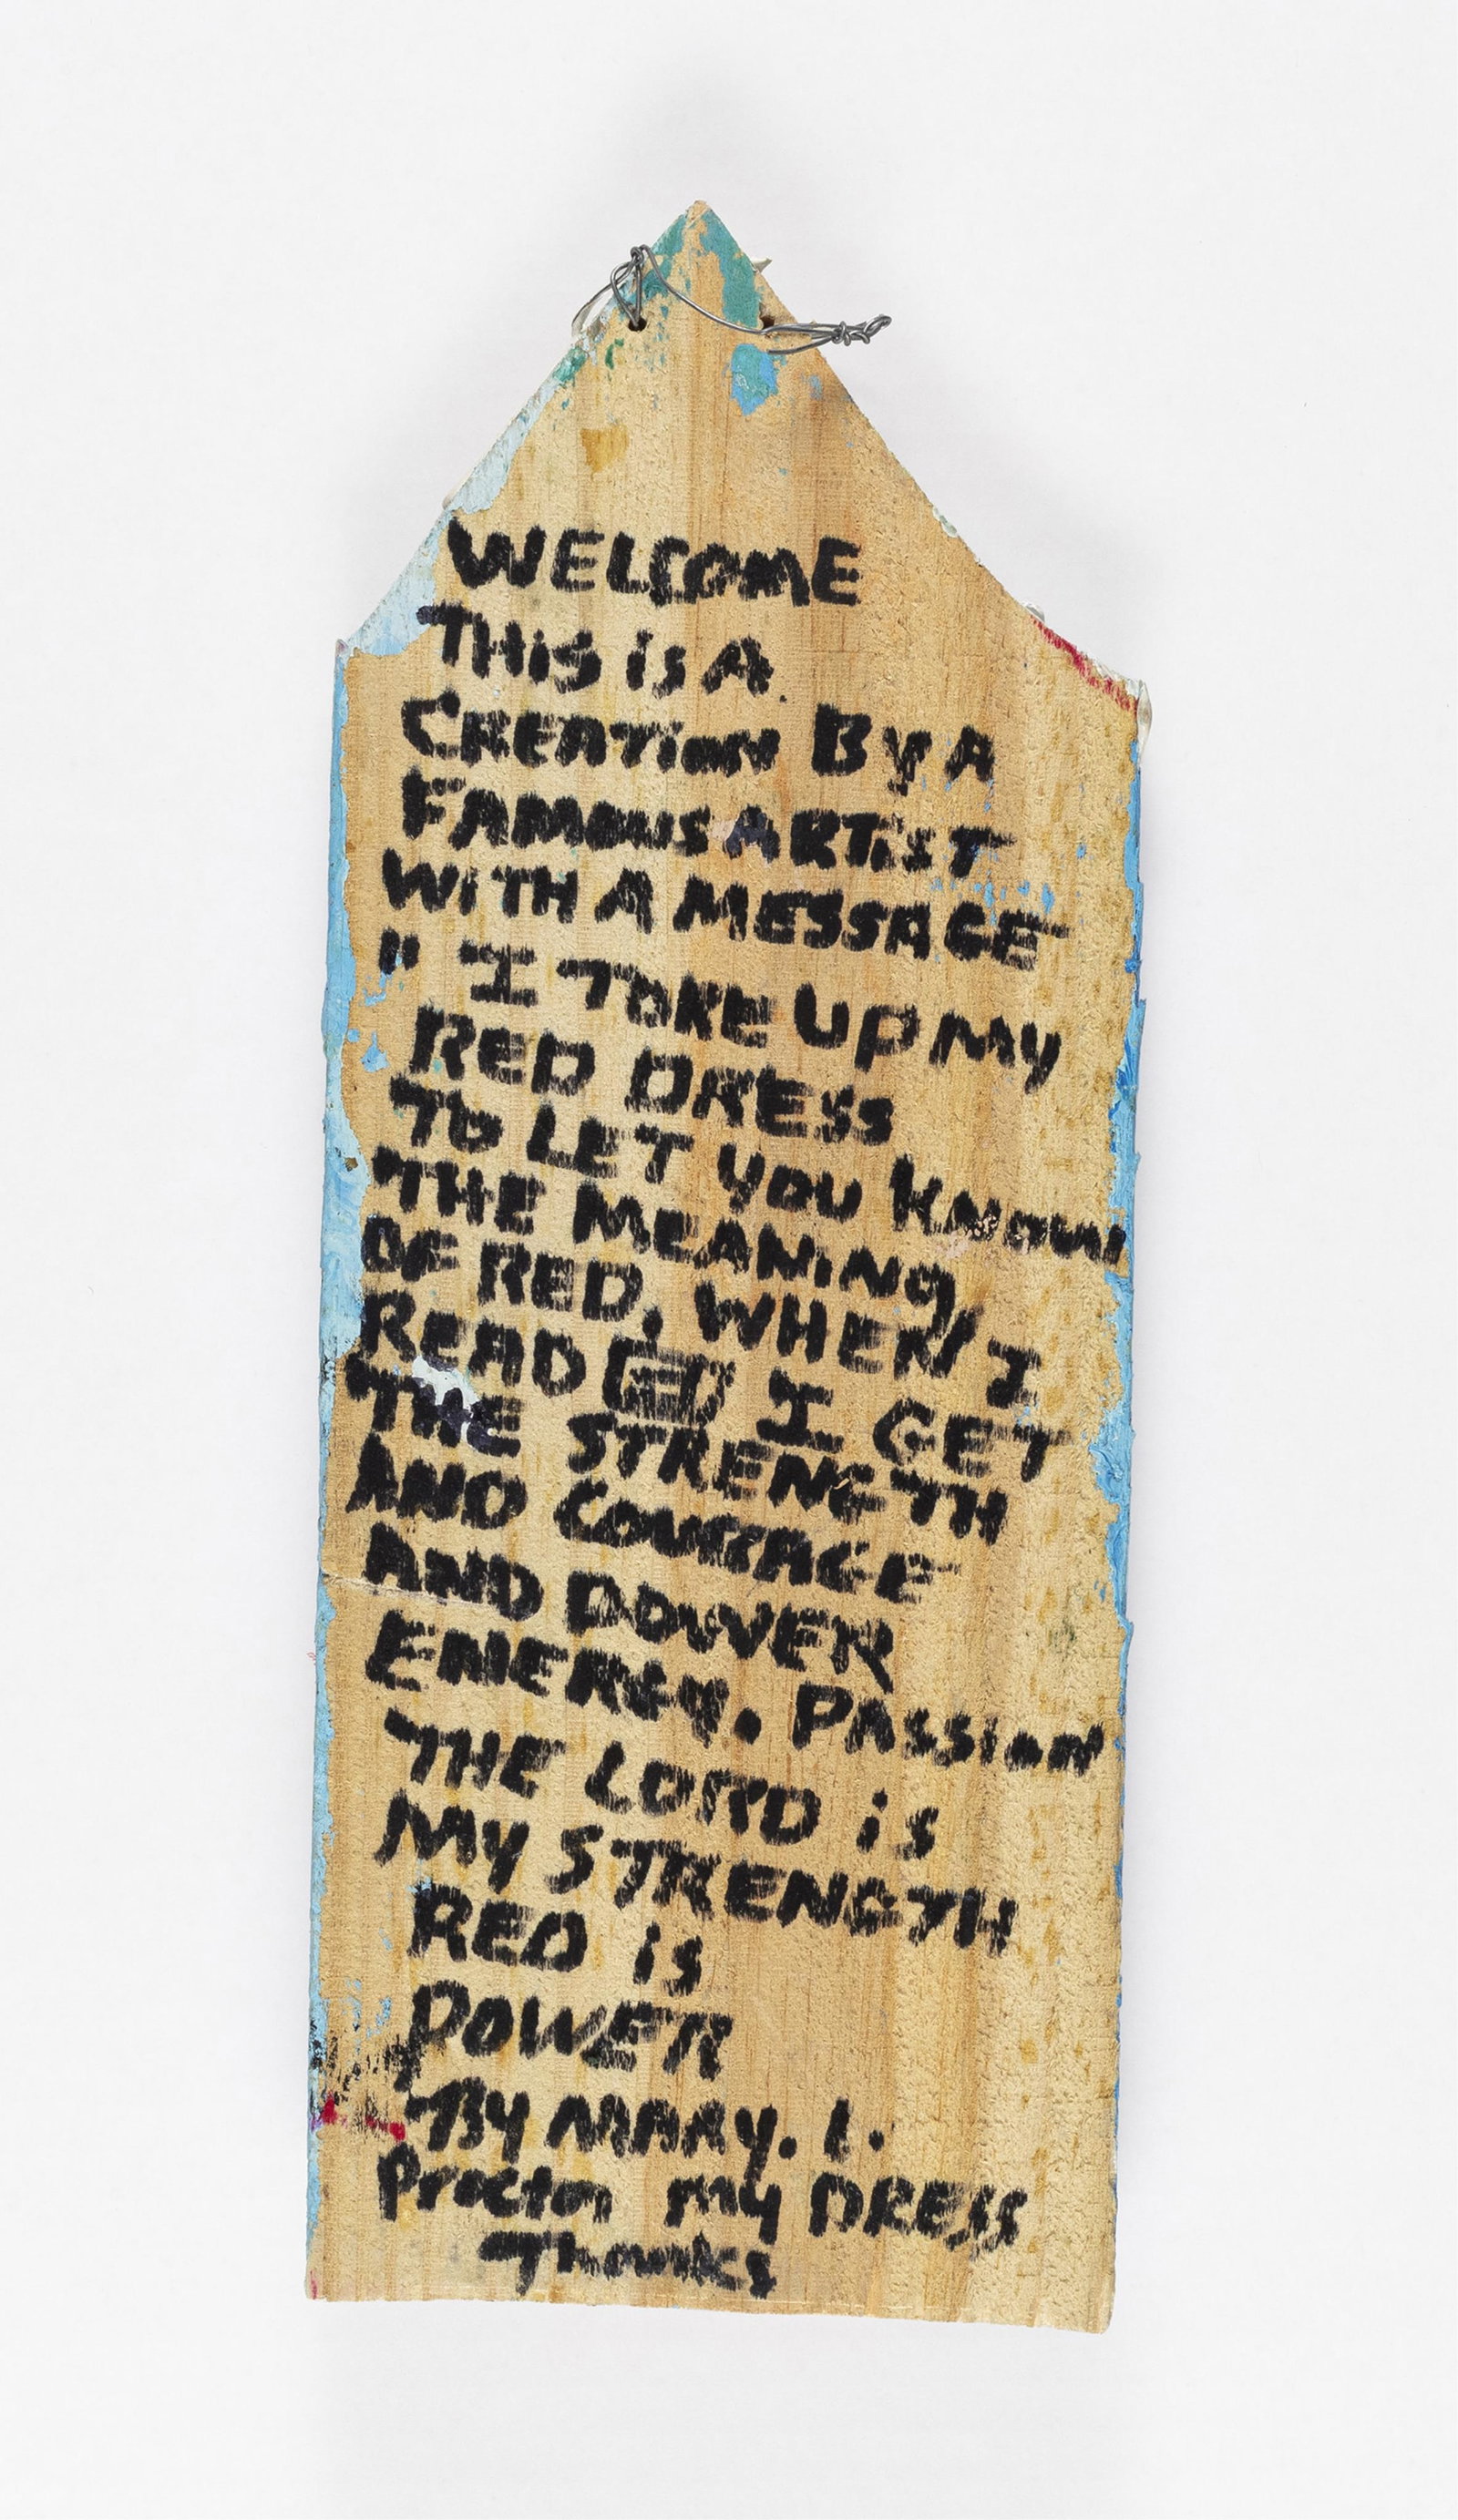 WELCOME
THiS iS A
CREATION By A
FAMOUS ARTiST
WiTH A MESSAGE
" I TORE UP My
RED DRESS
TO LET YOU KNOW
THE MEANiNg
OF RED, WHEN I
READ I GET
THE STRENGTH
AND COURAGE
AND POWER
ENERGY. PASSION
THE LORD is
My STRENGTH
RED is
POWER
By MARY. L.
Proctor my DRESS
Thanks